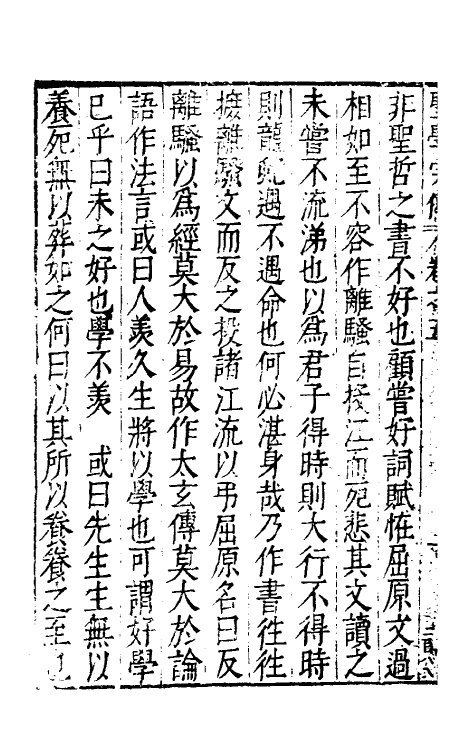 聖學宗傳
非聖哲之書不好也顧嘗好詞賦恠屈原文過
相如至不容作離騷自投江而死悲其文讀之
未嘗不流涕也以為君子得時則大行不得時
則龍蛇遇不遇命也何必湛身哉乃作書往往
摭離騷文而反之投諸江流以弔屈原名曰反
離騷以為經莫大於易故作太玄傳莫大於論
語作法言或曰人羨久生將以學也可謂好學
已乎曰未之好也學不羨　或曰先生生無以
養死無以葬如之何曰以其所以養養之至也